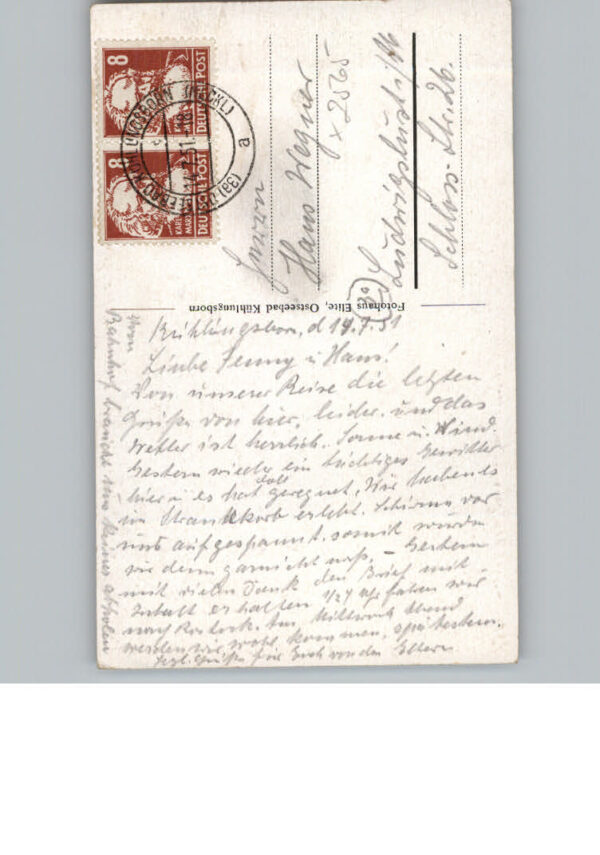 8
DEUTSCHE POST
KARL MARX
8
DEUTSCHE POST
KARL MARX
OSTSEEBAD KÜHLUNGSBORN (MECKL)
a
Herrn
Hans Wegner
x 2565
Ludwigslust i/M
Schloss-Str. 26.
Fotohaus Elite, Ostseebad Kühlungsborn
Kühlungsborn, d 14.7.51
Liebe Jenny u. Hans!
Von unserer Reise die letzten
Grüße von hier, leider. und das
Wetter ist herrlich. Sonne u. Wind.
Gestern wieder ein tüchtiges Gewitter
hier u. es hat doll geregnet. Wir haben es
im Strandkorb erlebt. Schirm vor
uns aufgespannt, somit wurden
wir denn garnicht naß. – Gestern
mit vielen Dank den Brief mit
Inhalt erhalten. 1/27 Uhr fahren wir
nach Rostock. Am Mittwoch Abend
werden wir wohl kommen, spätestens.
Herzl. Grüße für Euch von den Eltern
Vom
Bahnhof braucht uns keiner abholen